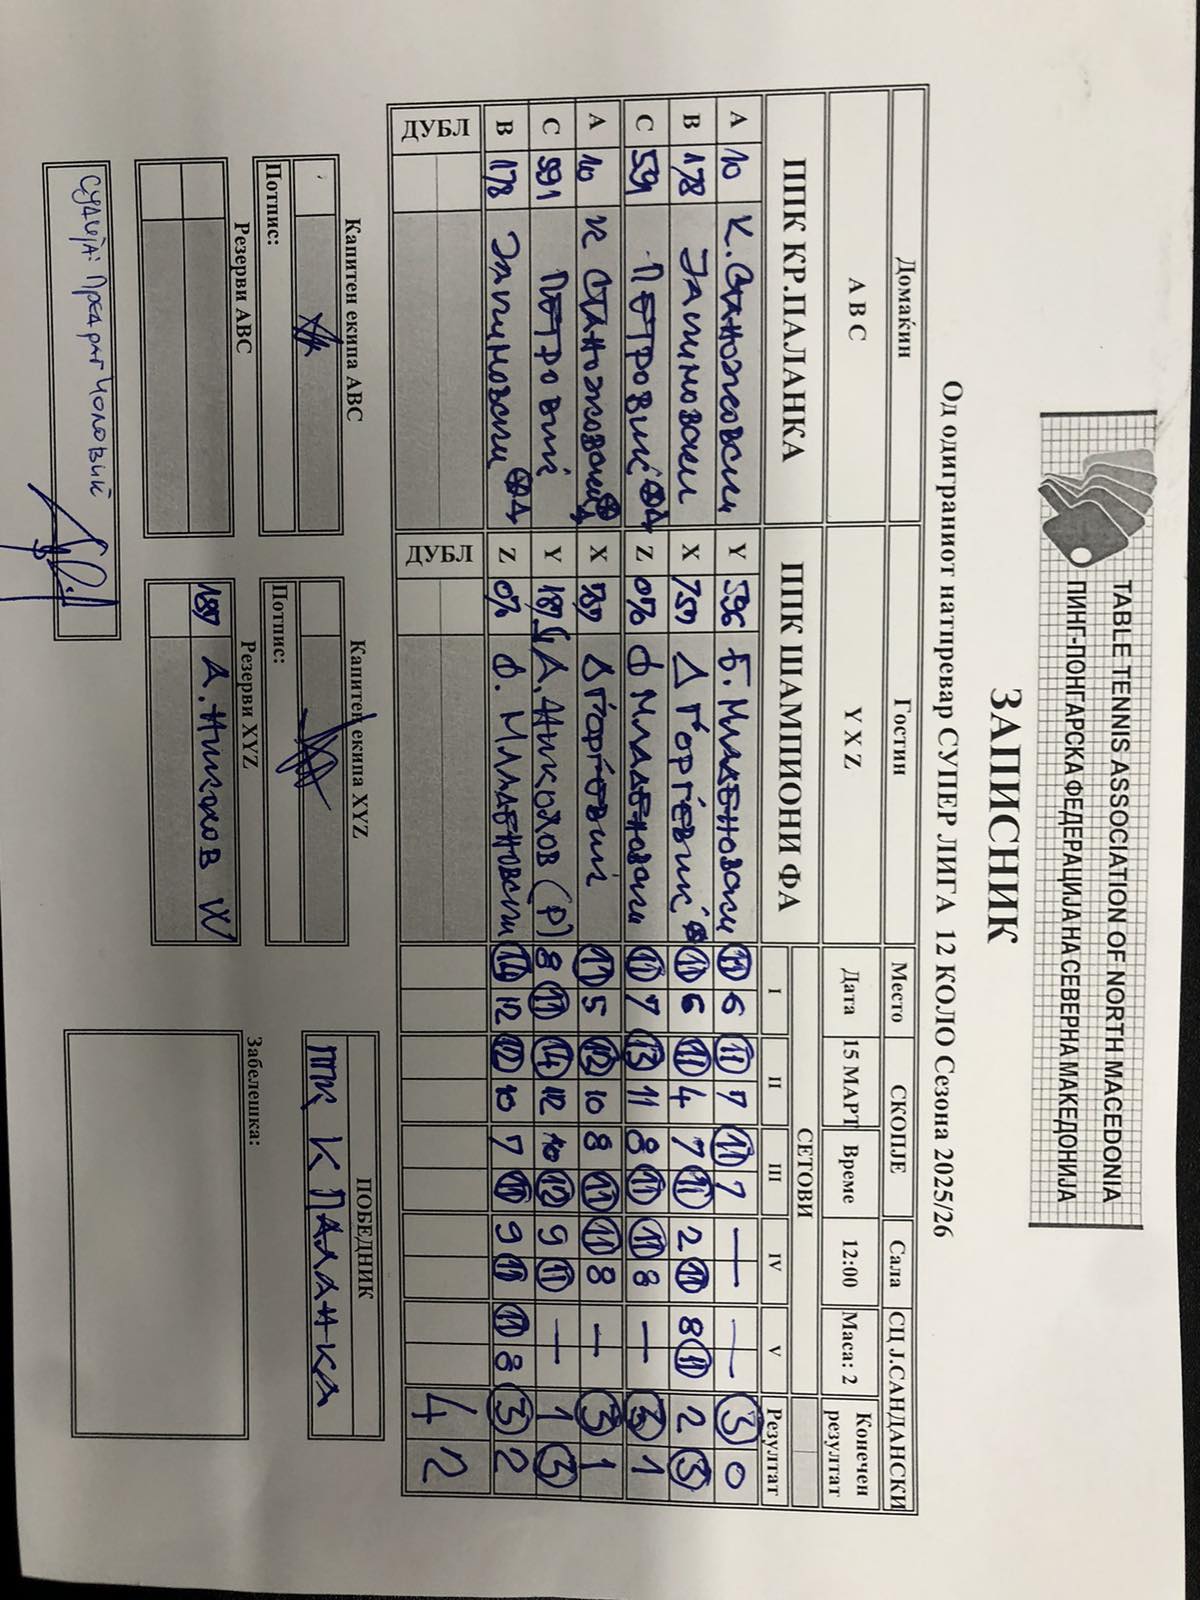 TABLE TENNIS ASSOCIATION OF NORTH MACEDONIA
ПИНГ-ПОНГАРСКА ФЕДЕРАЦИЈА НА СЕВЕРНА МАКЕДОНИЈА
ЗАПИСНИК
Од одиграниот натпревар СУПЕР ЛИГА 12 КОЛО Сезона 2025/26
Домаќин Гостин Место СКОПЈЕ Сала СЦ Ј.САНДАНСКИ
А В С Y X Z Дата 15 МАРТ Време 12:00 Маса: 2 Конечен резултат
ППК КР.ПАЛАНКА ППК ШАМПИОНИ ФА СЕТОВИ
I II III IV V Резултат
A 10 К. Станожовски Y 596 Б. Младеновски 11 6 11 7 11 7 — — 3 0
B 178 Запиновски X 757 Д Ѓорѓевиќ 11 6 11 4 7 11 2 11 8 11 2 3
C 591 Петровиќ Z 076 Ф Младеновски 11 7 13 11 8 11 11 8 — 3 1
A 10 К Станожовски X 757 Д Ѓорѓевиќ 11 5 12 10 8 11 11 8 — 3 1
C 591 Петровиќ Y 187 А. Николов (Р) 8 11 14 12 10 12 9 11 — 1 3
B 178 Запиновски Z 076 Ф. Младеновски 14 12 12 10 7 11 9 11 11 8 3 2
ДУБЛ ДУБЛ 4 2
Капитен екипа ABC
Потпис:
Резерви ABC
Капитен екипа XYZ
Потпис:
Резерви XYZ
187 А. Николов
ПОБЕДНИК
ППК К ПАЛАНКА
Забелешка:
Судија: Предраг Чоловиќ